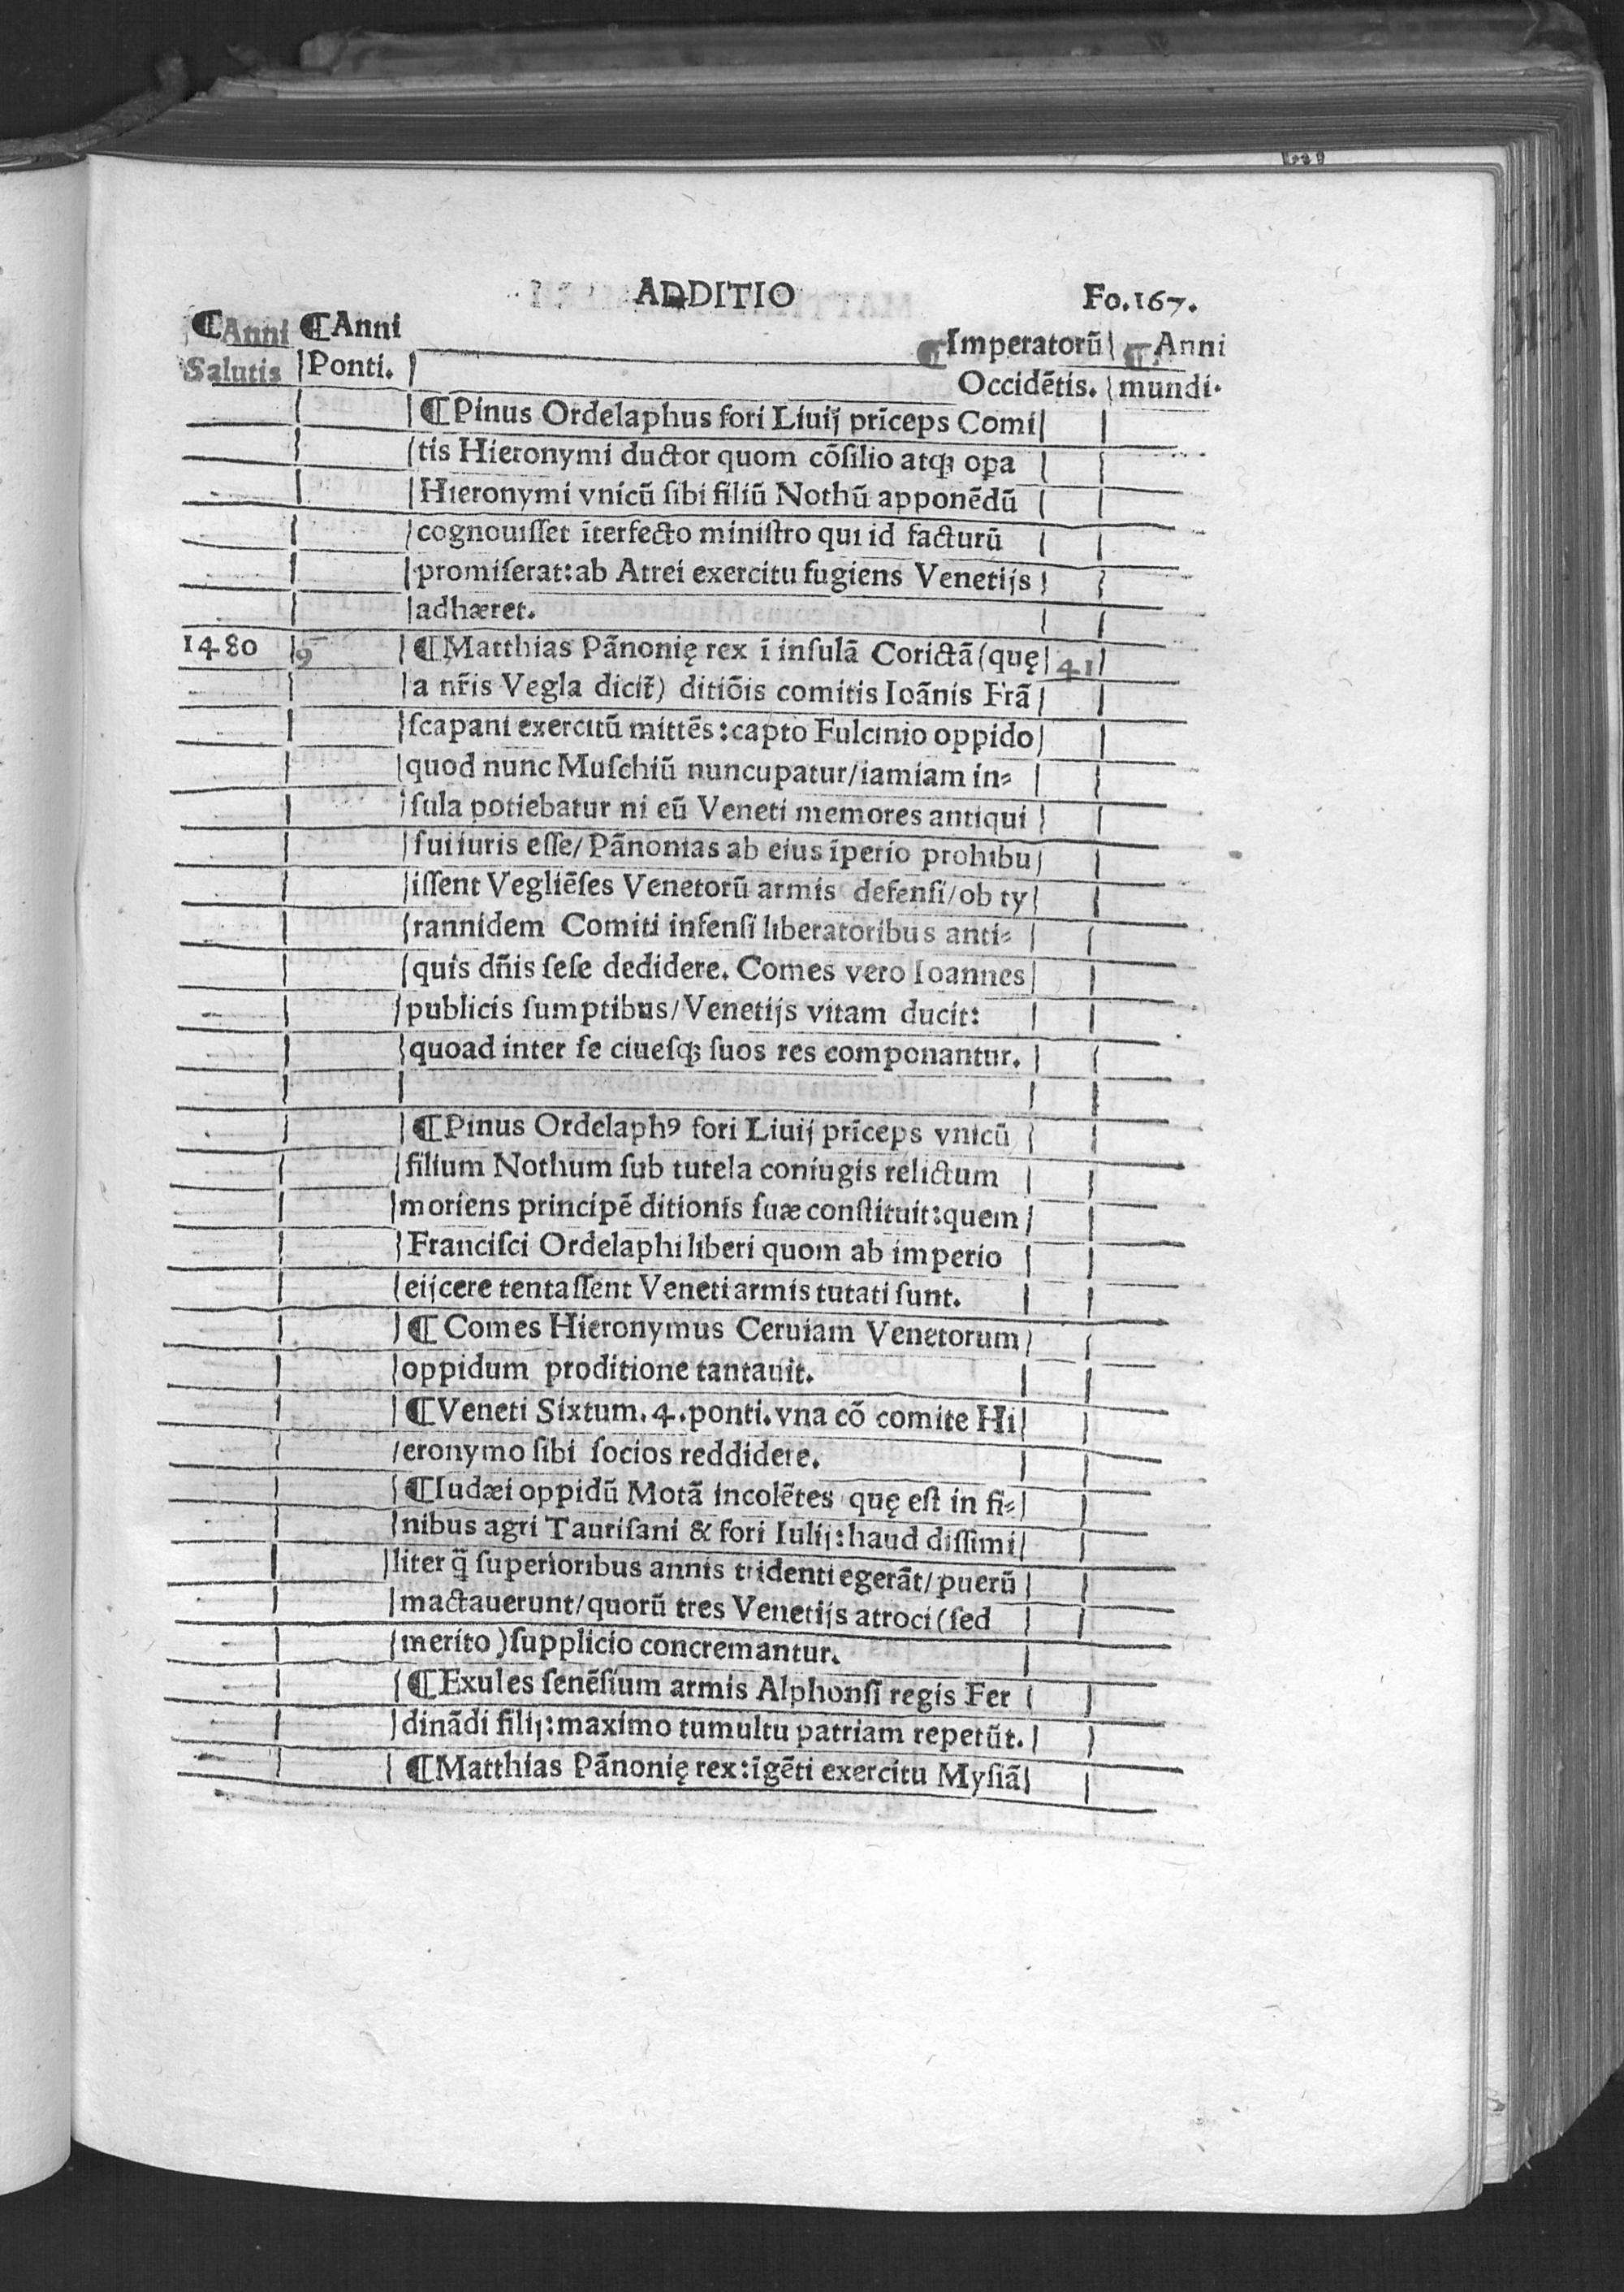 ADDITIO Fo.167.
¶Anni ¶Anni ¶Imperatorū ¶Anni
Salutis Ponti. Occidētis. mundi.
¶Pinus Ordelaphus fori Liuij prīceps Comi
tis Hieronymi ductor quom cōſilio atqꝫ oꝑa
Hieronymi vnicū ſibi filiū Nothū apponēdū
cognouiſſet īterfecto miniſtro qui id facturū
promiſerat:ab Atrei exercitu fugiens Venetijs
adhæret.
1480 9 ¶Matthias Pānonię rex ī inſulā Corictā(quę 41
a nr̄is Vegla dicit̄) ditiōis comitis Ioānis Frā
ſcapani exercitū mittēs:capto Fulcinio oppido
quod nunc Muſchiū nuncupatur/iamiam in⸗
ſula potiebatur ni eū Veneti memores antiqui
ſui iuris eſſe/Pānonias ab eius īperio prohibu
iſſent Vegliēſes Venetorū armis defenſi/ob ty
rannidem Comiti infenſi liberatoribus anti⸗
quis dn̄is ſeſe dedidere. Comes vero Ioannes
publicis ſumptibus/Venetijs vitam ducit:
quoad inter ſe ciueſqꝫ ſuos res componantur.
¶Pinus Ordelaphꝰ fori Liuij prīceps vnicū
filium Nothum ſub tutela coniugis relictum
moriens principē ditionis ſuæ conſtituit:quem
Franciſci Ordelaphi liberi quom ab imperio
eijcere tentaſſent Veneti armis tutati ſunt.
¶Comes Hieronymus Ceruiam Venetorum
oppidum proditione tantauit.
¶Veneti Sixtum.4.ponti.vna cō comite Hi
eronymo ſibi ſocios reddidere.
¶Iudæi oppidū Motā incolētes quę eſt in fi⸗
nibus agri Tauriſani & fori Iulij:haud diſſimi
liter q̄ ſuperioribus annis tridenti egerāt/puerū
mactauerunt/quorū tres Venetijs atroci(ſed
merito)ſupplicio concremantur.
¶Exules ſenēſium armis Alphonſi regis Fer
dinādi filij:maximo tumultu patriam repetūt.
¶Matthias Pānonię rex:īgēti exercitu Myſiā